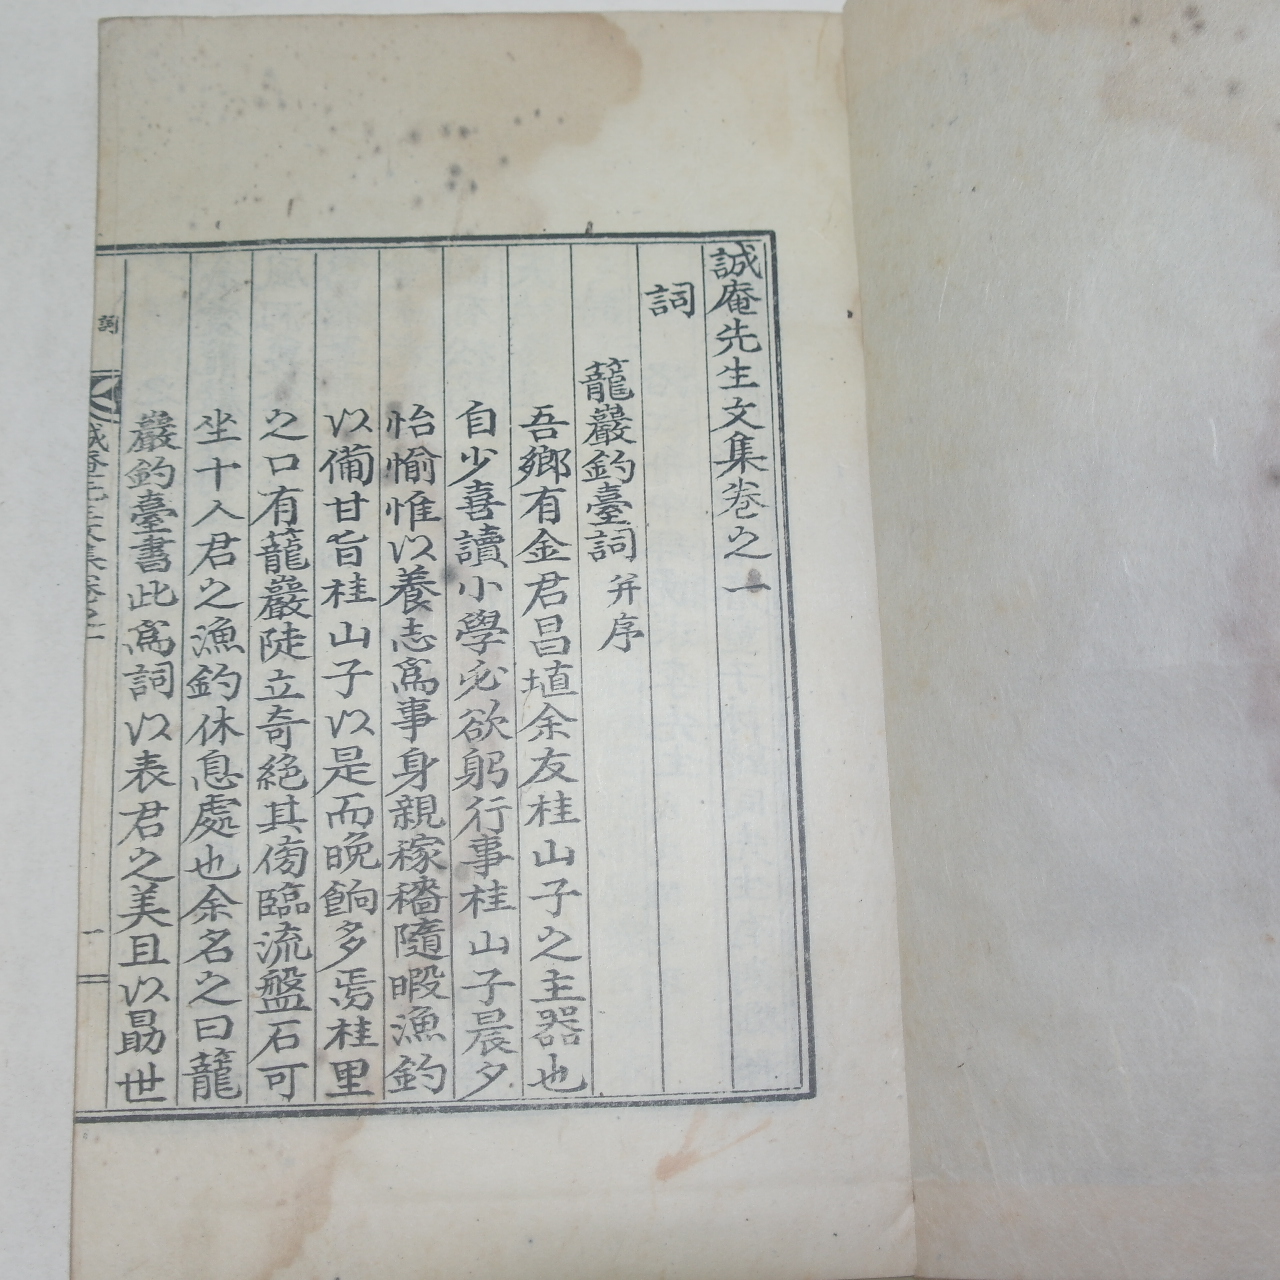 誠庵先生文集卷之一
詞
籠巖釣臺詞 并序
吾鄉有金君昌埴余友桂山子之主器也
自少喜讀小學必欲躬行事桂山子晨夕
怡愉惟以養志爲事身親稼穡隨暇漁釣
以備甘旨桂山子以是而晚餉多焉桂里
之口有籠巖陡立奇絕其傍臨流盤石可
坐十人君之漁釣休息處也余名之曰籠
巖釣臺書此爲詞以表君之美且以勗世
詞
誠庵先生文集卷之一
一